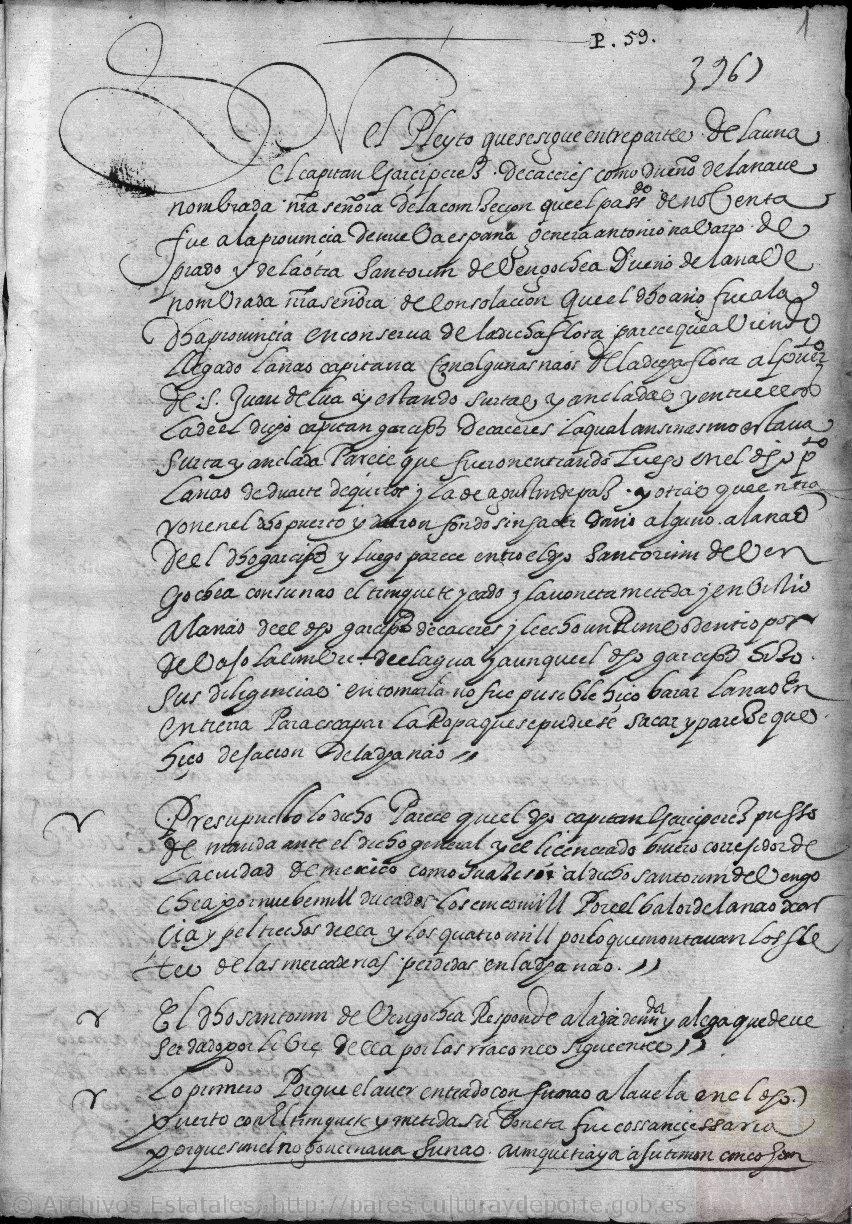 P. 59.
1
3961
El Pleyto que se sigue entre partes de la una
el capitan Garciperez de caceres como dueño de la naue
nombrada nra señora de la comsecion que el passdo de nobenta
fue a la prouincia de nueba españa general antonio nabarro de
prado y de la otra Santorum de Vengochea Dueño de la naue
nombrada nra señora de Consolacion que el dho año fue a la
dha prouinçia en conserua de la dicha flota parece que abiendo
llegado la nao capitana con algunas naos de la dicha flota al puerto
de S. Juan de lua y estando surtas y ancladas y entre ellas
la de el dicho capitan garcipz de caceres la qual ansimesmo estaua
surta y anclada Parece que fueron entrando luego en el dho pto
la nao de duarte de quiros y la de agustin de paz y otras que entra
ron en el dho puerto y dieron fondo sin hacer daño alguno a la nao
de el dho garcipz y luego parece entro el dho Santorum de Ven
gochea con su nao el trinquete ycado y la boneta metida y enbistio
a la nao de el dho garcipz de caceres y le echo un Rumbo dentro por
debaxo la lumbre del agua y aunque el dho garcipz hizo
sus diligencias en tomarla no fue pusible hiço barar la nao en
en tierra Para escapar la Ropa que se pudiese sacar y pareze que
hiço dejacion de la dha nao
Presupuesto lo dicho Parece que el dho capitan Garciperez pusso
demanda ante el dicho general y el licenciado biuero corregidor de
la ciudad de mexico como su asesor al dicho santorum de Vengo
chea por nuebe mill ducados los cinco mill Por el balor de la nao xar
cia y peltrechos della y los quatro mill por lo que montauan los fle
tes de las mercaderias perdidas en la dha nao.
El dho santorum de Vengochea Responde a la dha demanda y alega que deue
ser dado por libre della por las raçones siguientes
Lo primero Porque el auer entrado con su nao a la uela en el dho
puerto con el trinquete y metida su boneta fue cossa neçessaria
porque sin el no gouernaua su nao aunque traya a su timon cinco hom
© Archivos Estatales, http://pares.culturaydeporte.gob.es